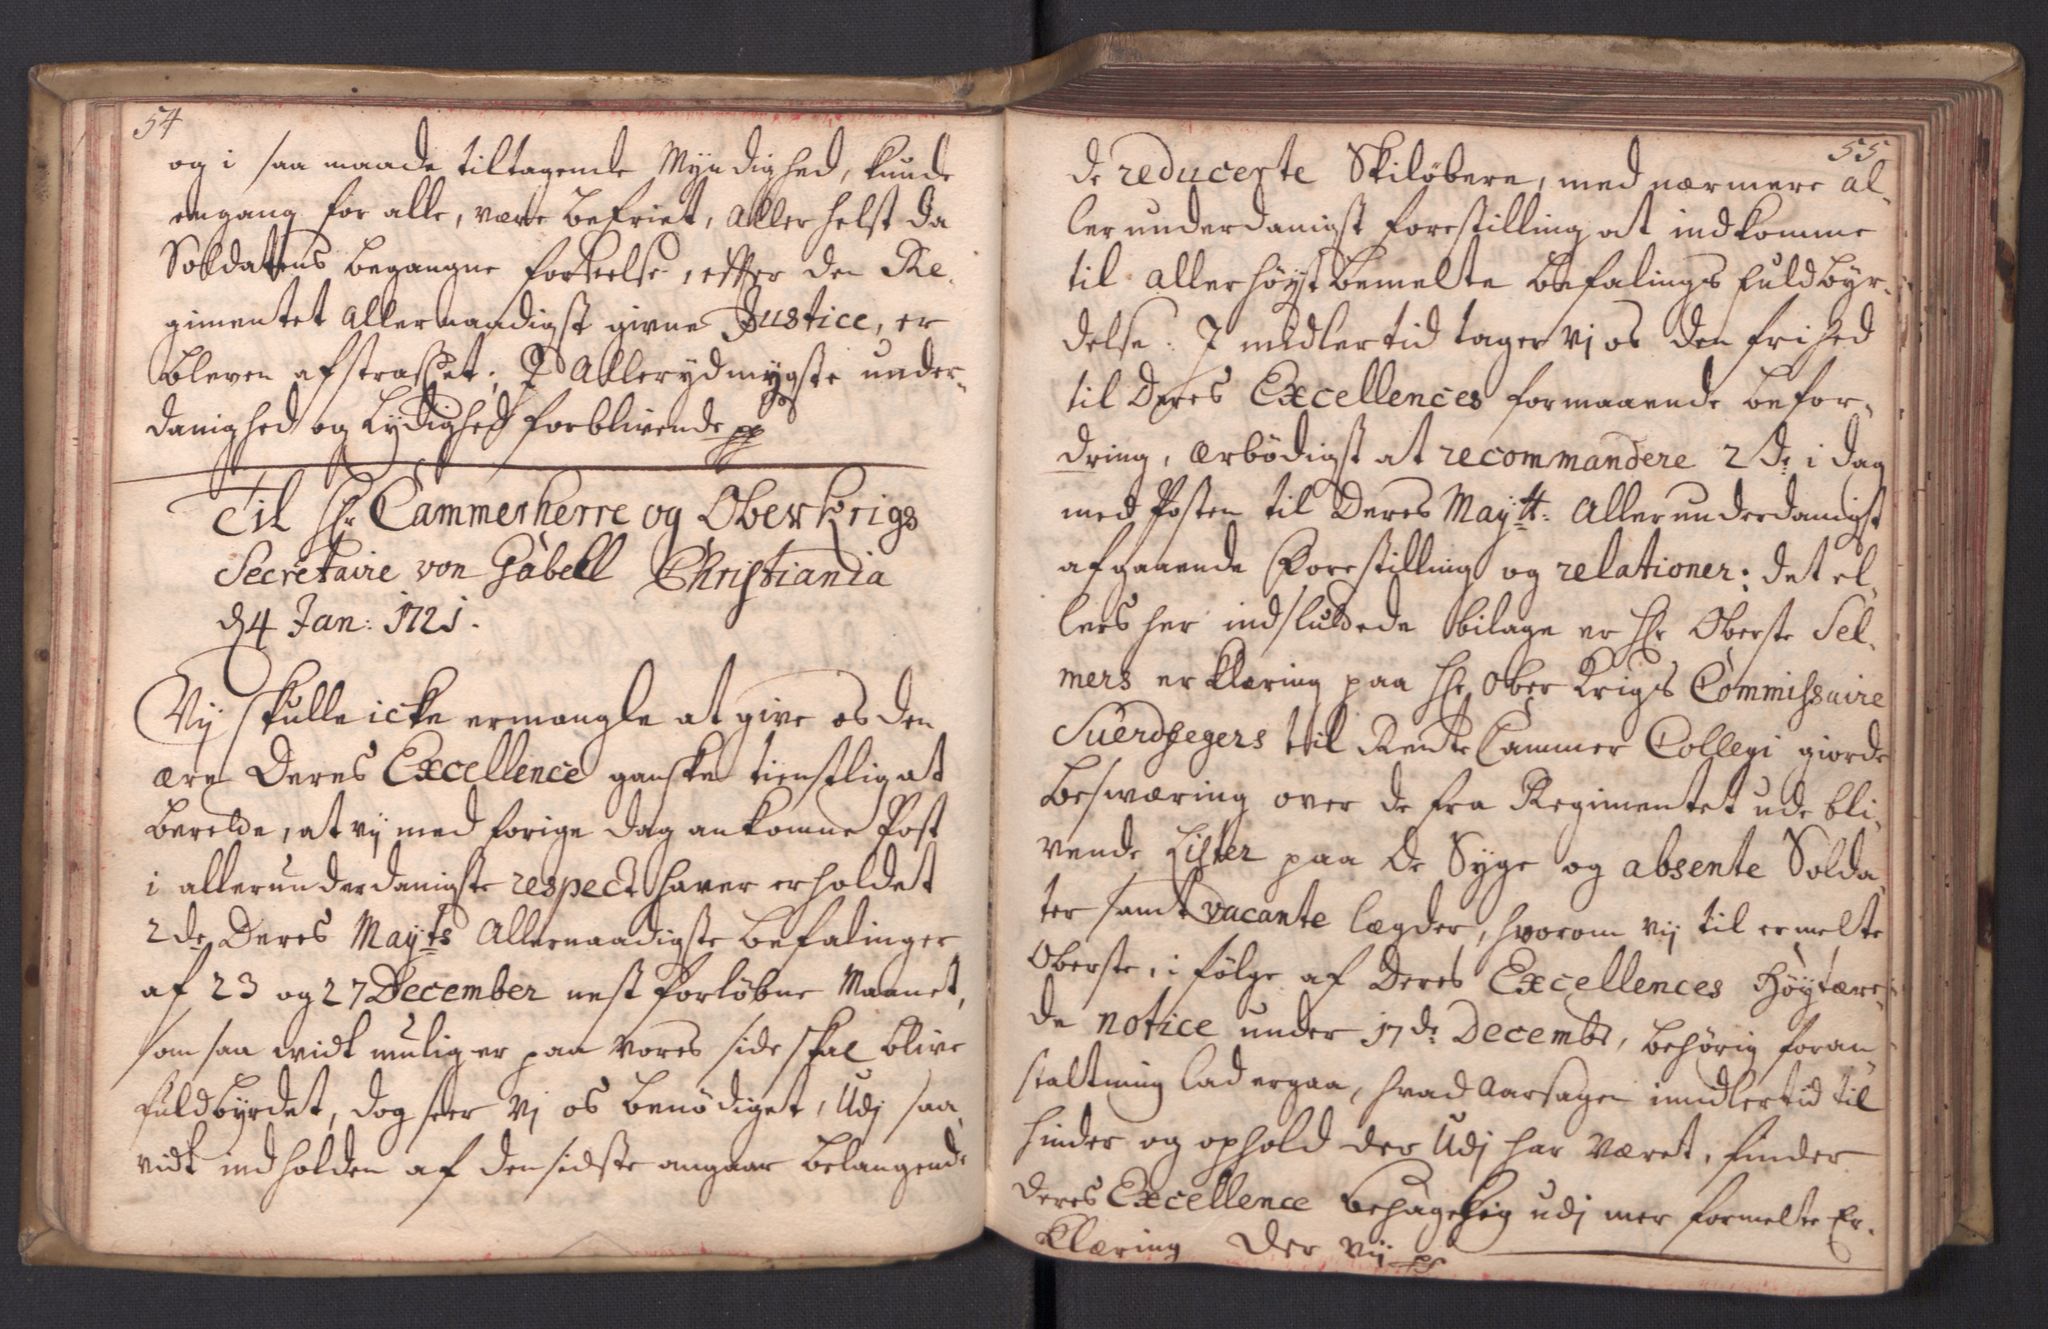 54
og i saa maade tiltagende Myndighed, kunde
engang for alle, være befriet, Aller helst da
Soldatens begangne forseelse, efter den Re-
gimentet Allernaadigst givne Justice, er
bleven afstraffet; I Allerydmygste under-
danighed og Lydighed forblivende pp
Til Hr Cammerherre og Oberkrigs
Secretaire von Gabell Christiania
d 4 Jan: 1721.
Vij skulle icke ermangle at give os den
ære Deres Excellence ganske tienstlig at
berette, at vij med forige dag ankomne Post
i allerunderdanigste respect haver erholdet
2de Deres Mayts Allernaadigste befalinger
af 23 og 27 December nest forløbne Maanet,
som saa vidt mulig er paa vores side skal blive
fuldbyrdet, dog seer vj os benødiget, Udj saa
vidt indholden af den sidste angaar belangende
55
de reducerte Skiløbere, med nærmere al-
lerunderdanigst forestilling at indkomme
til allerhøyst bemelte befalings fuldbyr-
delse. I midlertid tager vj os den frihed
til Deres Excellences formaaende befor-
dring, ærbødigst at recommandere 2de i dag
med Posten til Deres Maytt: Allerunderdanigst
afgaaende Forestilling og relationer; det el-
lers her indsluttede bilage er Hr Oberste Sel-
mers erklæring paa Hr Ober Krigs Commissaire
Suerdfegers til Rente Cammer Collegi giorde
besværing over de fra Regimentet ude bli-
vende Lister paa de Syge og absente Solda-
ter samt vacante lægder, hvorom vij til ermelte
Oberste, i følge af Deres Excellences Høytære-
de notice under 17de Decembr, behørig foran-
staltning lad ergaa, hvad Aarsagen imidlertid til
hinder og ophold der Udj har været, finder
Deres Excellence behagelig udj mer formelte Er-
klæring Der vij pp